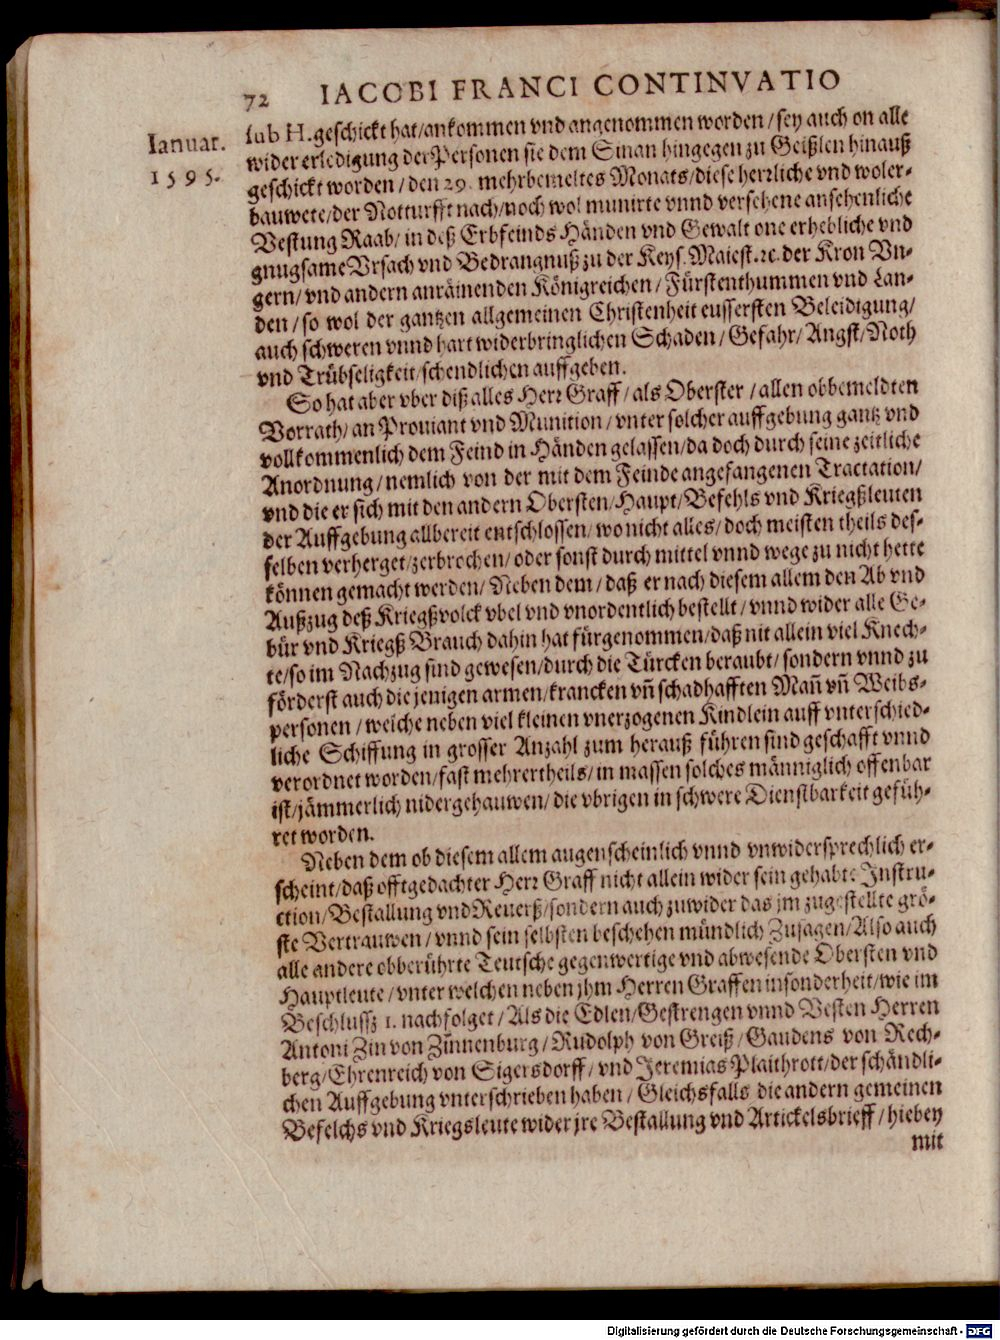 72 IACOBI FRANCI CONTINVATIO
Ianuar.
1595.
sub H. geschickt hat/ankommen vnd angenommen worden/sey auch on alle
wider erledigung der Personen sie dem Sinan hingegen zu Geißlen hinauß
geschickt worden/den 29. mehrbemeltes Monats/diese herrliche vnd woler-
bauwete/der Notturfft nach/noch wol munirte vnnd versehene ansehenliche
Vestung Raab/in deß Erbfeinds Händen vnd Gewalt one erhebliche vnd
gnugsame Vrsach vnd Bedrangnuß zu der Keys. Maiest. ꝛc. der Kron Vn-
gern/vnd andern anräinenden Königreichen/Fürstenthummen vnd Lan-
den/so wol der gantzen allgemeinen Christenheit eussersten Beleidigung/
auch schweren vnnd hart widerbringlichen Schaden/Gefahr/Angst/Noth
vnd Trübseligkeit/schendlichen auffgeben.
So hat aber vber diß alles Herr Graff/als Oberster/allen obbemeldten
Vorrath/an Prouiant vnd Munition/vnter solcher auffgebung gantz vnd
vollkommenlich dem Feind in Händen gelassen/da doch durch seine zeitliche
Anordnung/nemlich von der mit dem Feinde angefangenen Tractation/
vnd die er sich mit den andern Obersten/Haupt/Befehls vnd Kriegßleuten
der Auffgebung allbereit entschlossen/wo nicht alles/doch meisten theils des-
selben verherget/zerbrochen/oder sonst durch mittel vnnd wege zu nicht hette
können gemacht werden/Neben dem/daß er nach diesem allem den Ab vnd
Außzug deß Kriegßvolck vbel vnd vnordentlich bestellt/vnnd wider alle Ge-
bür vnd Kriegß Brauch dahin hat fürgenommen/daß nit allein viel Knech-
te/so im Nachzug sind gewesen/durch die Türcken beraubt/sondern vnnd zu
förderst auch die jenigen armen/krancken vñ schadhafften Mañ vñ Weibs-
personen/welche neben viel kleinen vnerzogenen Kindlein auff vnterschied-
liche Schiffung in grosser Anzahl zum herauß führen sind geschafft vnnd
verordnet worden/fast mehrertheils/in massen solches männiglich offenbar
ist/jämmerlich nidergehauwen/die vbrigen in schwere Dienstbarkeit gefüh-
ret worden.
Neben dem ob diesem allem augenscheinlich vnnd vnwidersprechlich er-
scheint/daß offtgedachter Herr Graff nicht allein wider sein gehabte Instru-
ction/Bestallung vnd Reuerß/sondern auch zuwider das jm zugestellte grö-
ste Vertrauwen/vnnd sein selbsten beschehen mündlich Zusagen/Also auch
alle andere obberührte Teutsche gegenwertige vnd abwesende Obersten vnd
Hauptleute/vnter welchen neben jhm Herren Graffen insonderheit/wie im
Beschlussz 1. nachfolget/Als die Edlen/Gestrengen vnnd Vesten Herren
Antoni Zin von Zinnenburg/Rudolph von Greiß/Gaudens von Rech-
berg/Ehrenreich von Sigersdorff/vnd Jeremias Plaithrott/der schändli-
chen Auffgebung vnterschrieben haben/Gleichsfalls die andern gemeinen
Befelchs vnd Kriegsleute wider jre Bestallung vnd Artickelsbrieff/hiebey
mit
Digitalisierung gefördert durch die Deutsche Forschungsgemeinschaft - DFG